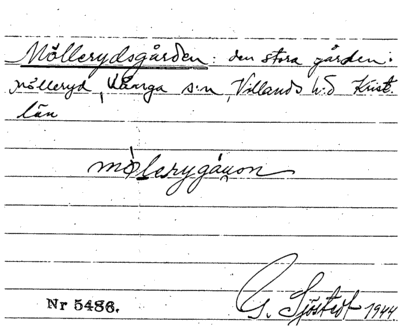 Möllerydsgården: den stora gården.
Mölleryd, Vånga s:n, Villands h:d Krist.
län
mölerygå̀ṇon
Nr 5486.
G. Sjöstrof 1944